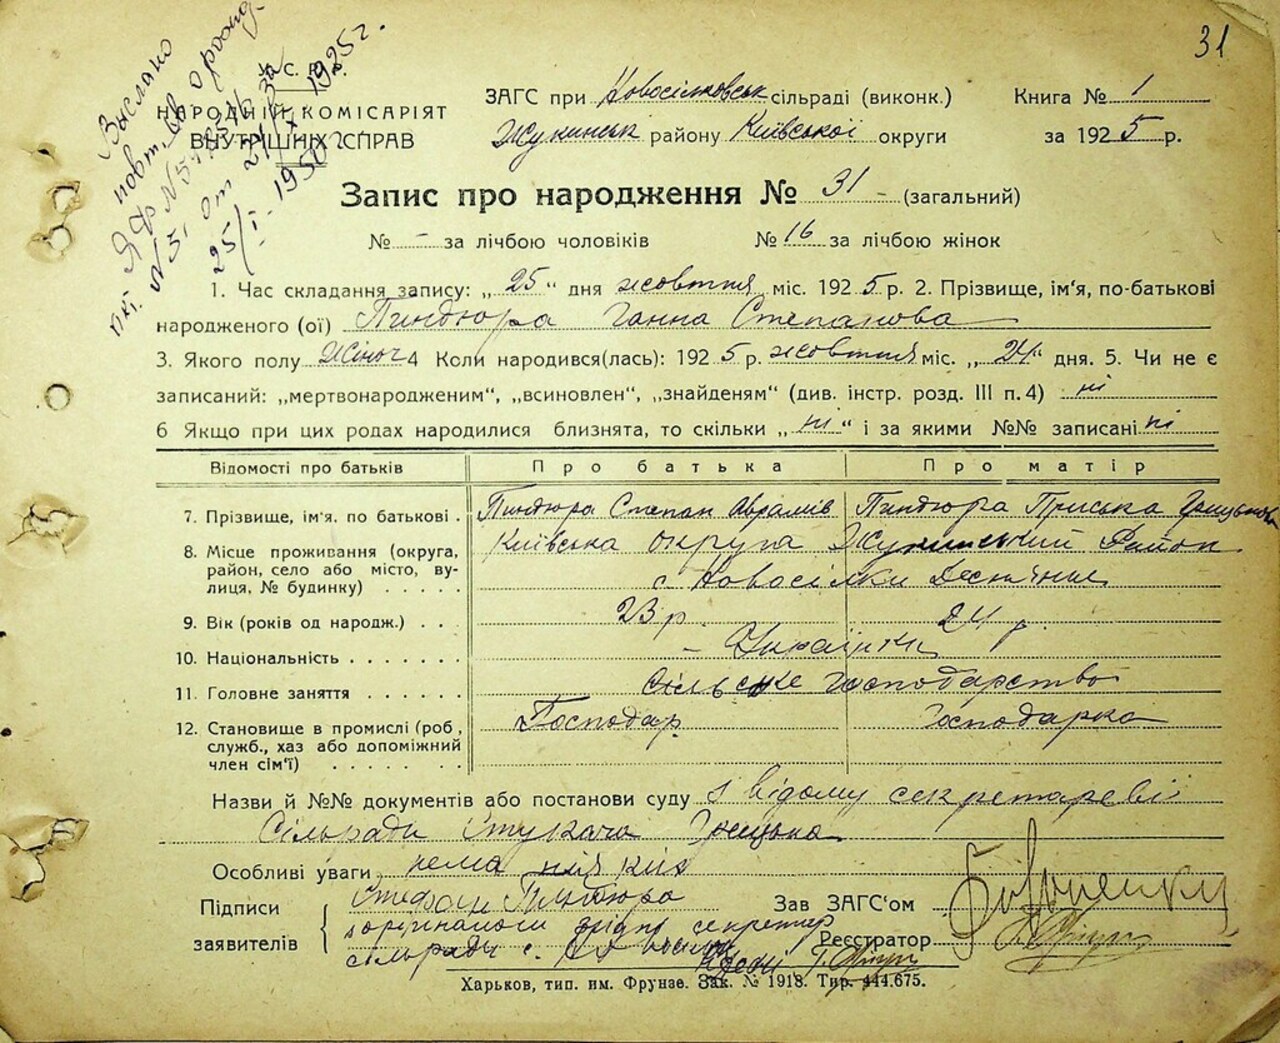 31
Выслано
повт. св.
25/I 1950
1925 г.
У. С. Р. Р.
НАРОДНІЙ КОМІСАРІЯТ
ВНУТРІШНІХ СПРАВ
ЗАГС при Новосілковськ сільраді (виконк.) Книга № 1
Жукинськ району Київської округи за 1925 р.
Запис про народження № 31 - (загальний)
№ - за лічбою чоловіків № 16 за лічбою жінок
1. Час складання запису: „25“ дня жовтня міс. 1925 р. 2. Прізвище, ім‘я, по-батькові
народженого (ої) Пиндюра Ганна Степанова
3. Якого полу Жіноч 4 Коли народився(лась): 1925 р. жовтня міс. „24“ дня. 5. Чи не є
записаний: „мертвонародженим“, „всиновлен“, „знайденям“ (див. інстр. розд. III п. 4) ні
6 Якщо при цих родах народилися близнята, то скільки „ні“ і за якими №№ записані ні
Відомості про батьків Про батька Про матір
7. Прізвище, ім‘я. по батькові . Пиндюра Степан Аврамів Пиндюра Приська Грицькова
8. Місце проживання (округа, Київська округа Жукинський Район
район, село або місто, ву- с. Новосілки Деснянські
лиця, № будинку) . . . . .
9. Вік (років од народж.) . . . 23 р. 24 р.
10. Національність . . . . . . . - Українці
11. Головне заняття . . . . . . Сільське господарство
12. Становище в промислі (роб, Господар Господарка
служб., хаз або допоміжний
член сім‘ї) . . . . . .
Назви й №№ документів або постанови суду з відому секретареві
Сільради Стукача Грицька
Особливі уваги нема ніяких
Підписи Стефан Пиндюра Зав ЗАГС‘ом
заявителів з оригіналом згідно секретар
сільради с. Реєстратор
Харьков, тип. им. Фрунзе. Зак. № 1918. Тир. 444.675.